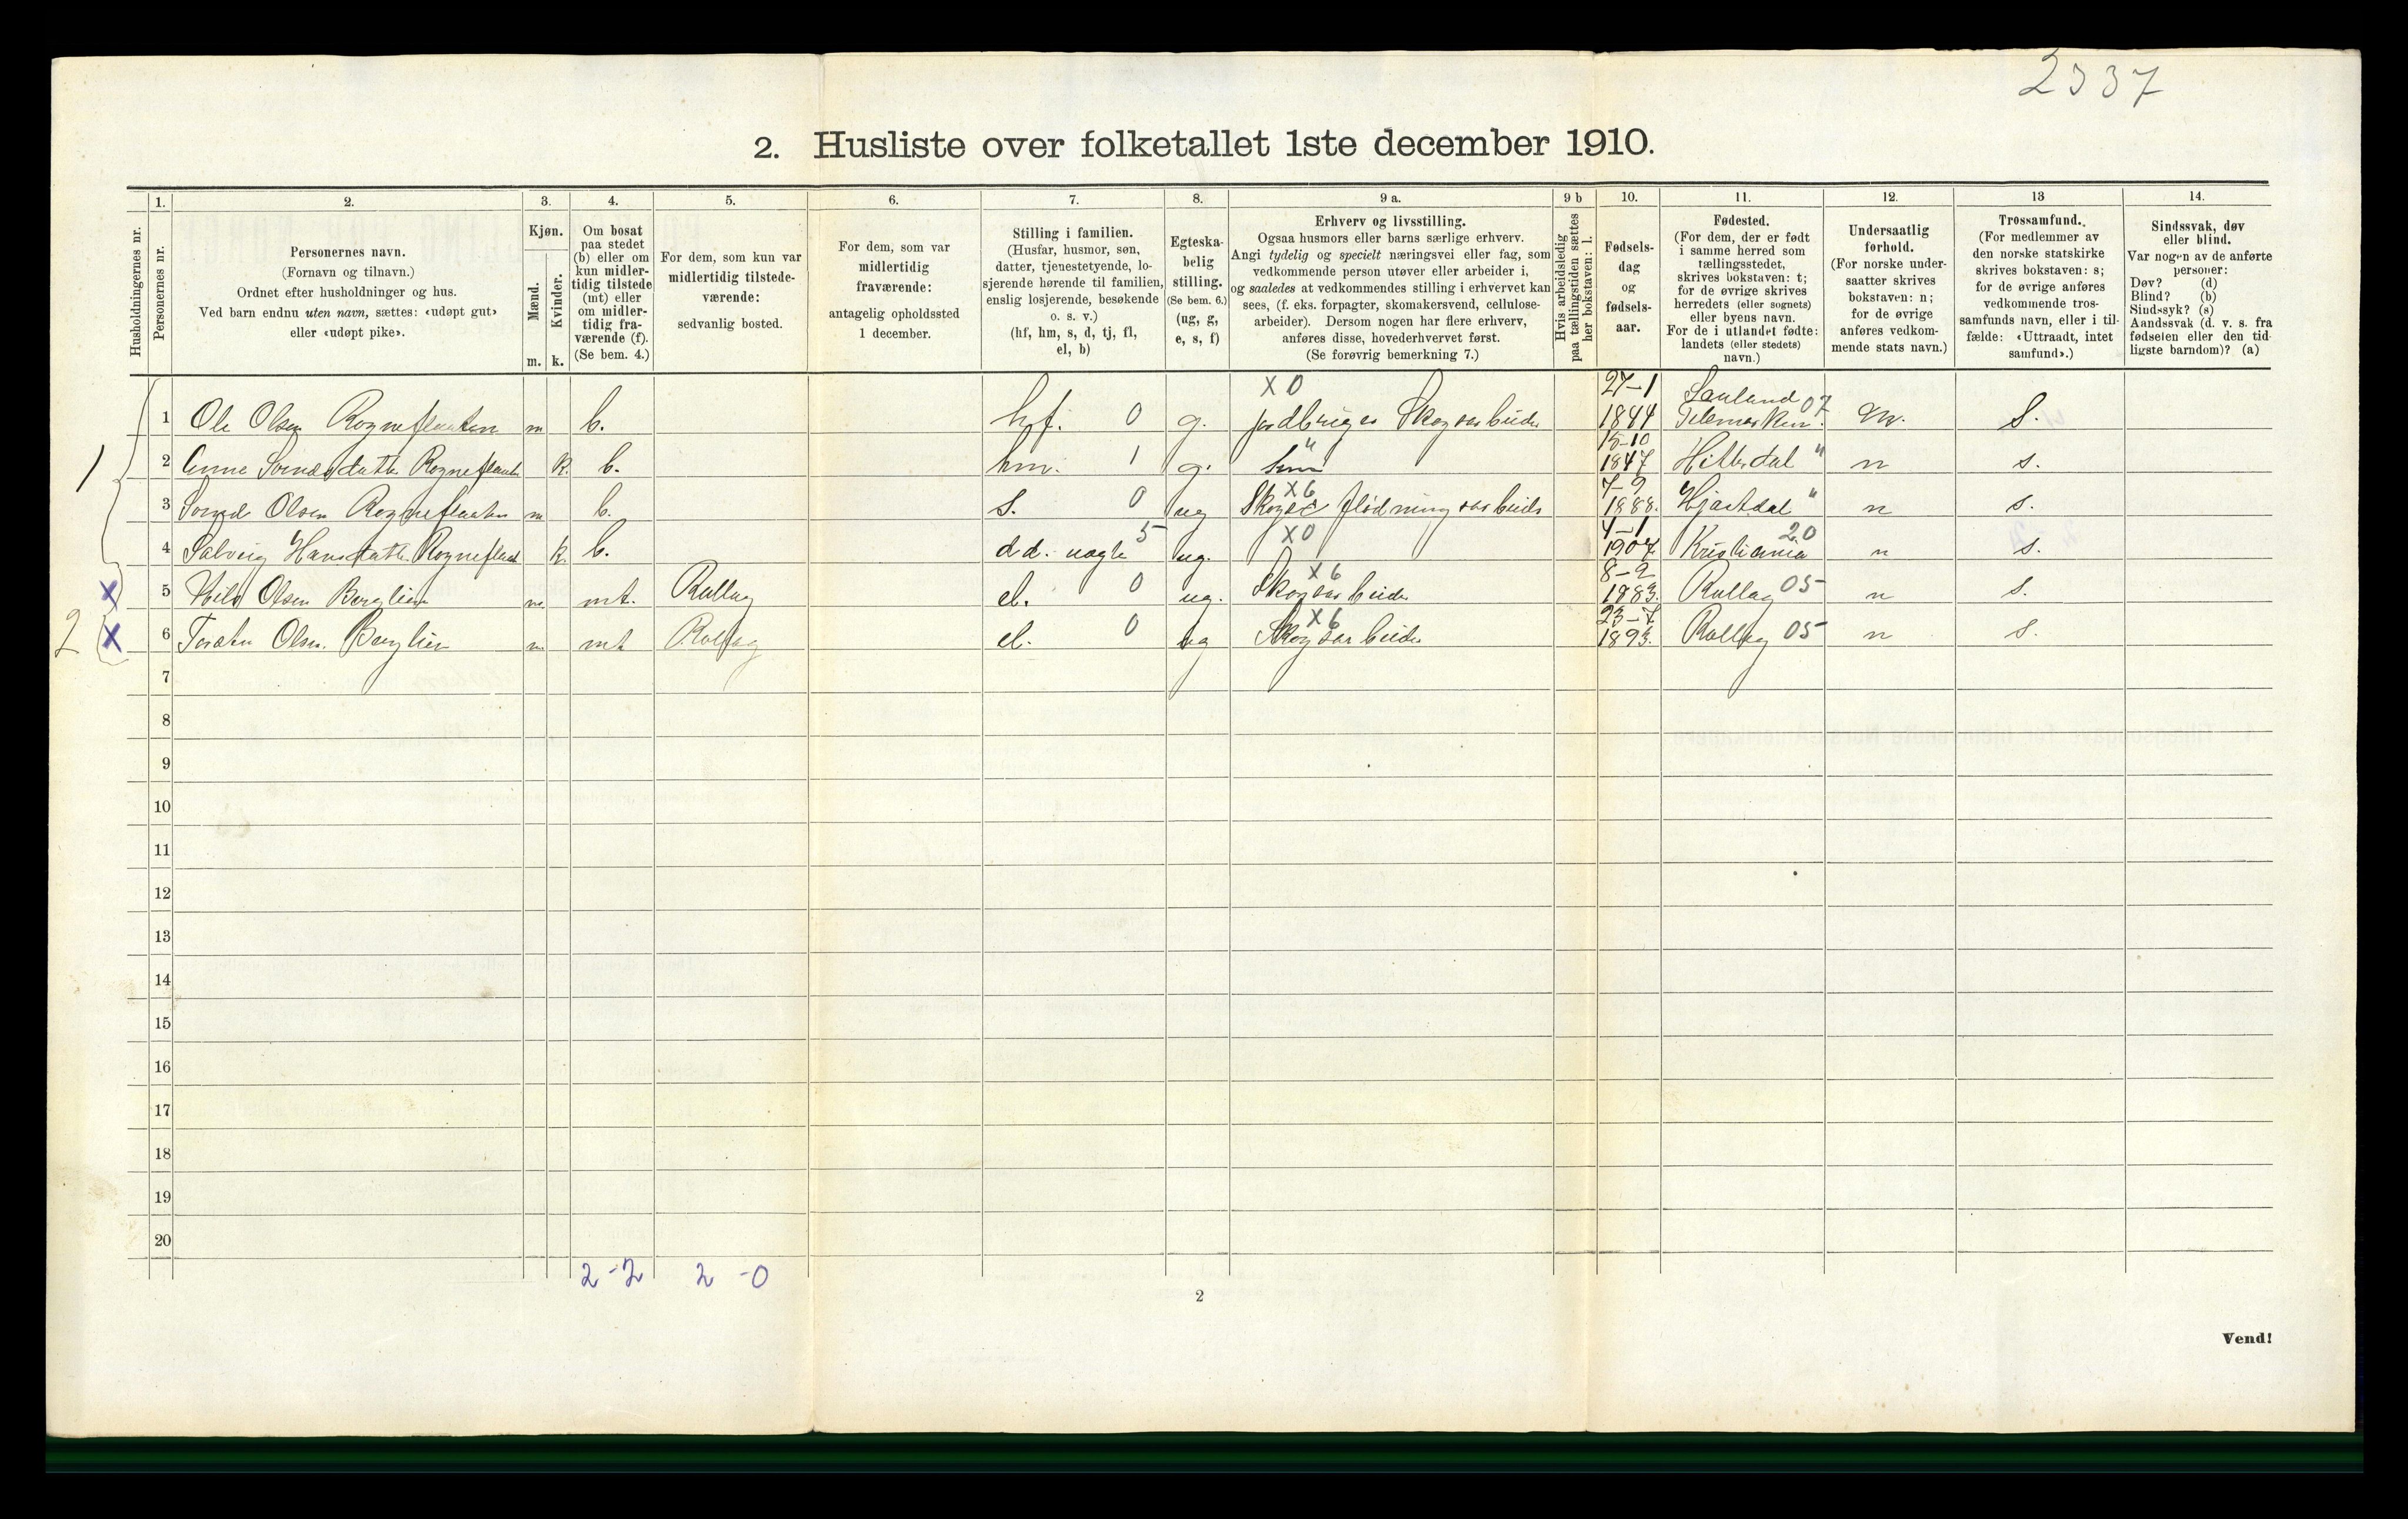 2337
2. Husliste over folketallet 1ste december 1910.
Husholdningernes nr.
1.
Personernes nr.
2.
Personernes navn.
(Fornavn og tilnavn.)
Ordnet efter husholdninger og hus.
Ved barn endnu uten navn, sættes: «udøpt gut»
eller «udøpt pike».
3.
Kjøn.
Mænd.
Kvinder.
m. k.
4.
Om bosat
paa stedet
(b) eller om
kun midler-
tidig tilstede
(mt) eller
om midler-
tidig fra-
værende (f).
(Se bem. 4.)
5.
For dem, som kun var
midlertidig tilstede-
værende:
sedvanlig bosted.
6.
For dem, som var
midlertidig
fraværende:
antagelig opholdssted
1 december.
7.
Stilling i familien.
(Husfar, husmor, søn,
datter, tjenestetyende, lo-
sjerende hørende til familien,
enslig losjerende, besøkende
o. s. v.)
(hf, hm, s, d, tj, fl,
el, b)
8.
Egteska-
belig
stilling.
(Se bem. 6.)
(ug, g,
e, s, f)
9 a.
Erhverv og livsstilling.
Ogsaa husmors eller barns særlige erhverv.
Angi tydelig og specielt næringsvei eller fag, som
vedkommende person utøver eller arbeider i,
og saaledes at vedkommendes stilling i erhvervet kan
sees, (f. eks. forpagter, skomakersvend, cellulose-
arbeider). Dersom nogen har flere erhverv,
anføres disse, hovederhvervet først.
(Se forøvrig bemerkning 7.)
9 b
Hvis arbeidsledig
paa tællingstiden sættes
her bokstaven: l.
10.
Fødsels-
dag
og
fødsels-
aar.
11.
Fødested.
(For dem, der er født
i samme herred som
tællingsstedet,
skrives bokstaven: t;
for de øvrige skrives
herredets (eller sognets)
eller byens navn.
For de i utlandet fødte:
landets (eller stedets)
navn.)
12.
Undersaatlig
forhold.
(For norske under-
saatter skrives
bokstaven: n;
for de øvrige
anføres vedkom-
mende stats navn.)
13
Trossamfund.
(For medlemmer av
den norske statskirke
skrives bokstaven: s;
for de øvrige anføres
vedkommende tros-
samfunds navn, eller i til-
fælde: «Uttraadt, intet
samfund».)
14.
Sindssvak, døv
eller blind.
Var nogen av de anførte
personer:
Døv? (d)
Blind? (b)
Sindssyk? (s)
Aandssvak (d. v. s. fra
fødselen eller den tid-
ligste barndom)? (a)
1 1 Ole Olsen Rogneflaaten m b. hf. 0 g. X0 jordbruger Skogsarbeider 27-1 1844 Sauland 07 Telemarken. n. S.
2 Anne k. b. hm. 1 g. " hm 18-10 1847 Hitterdal " n s.
3 Olsen Rogneflaaten m b. s. 0 ug X6 Skogs & flødningsarbeider 7-9 1888. Hjartdal " n s.
4 Solveig k. b. d.d. 5 ug. X0 4-1 1907 Kristiania 20 n s.
X 5 Nils Olsen Berglien m. mt. Rollag el. 0 ug. X6 Skogsarbeider 8-2 1883. Rollag 05 n s.
2 X 6 Olsen. Berglien m. mt Rollag el. 0 ug X6 Skogsarbeider 23-7 1893. Rollag 05 n s.
7
8
9
10
11
12
13
14
15
16
17
18
19
20
2-2 2-0
2
Vend!